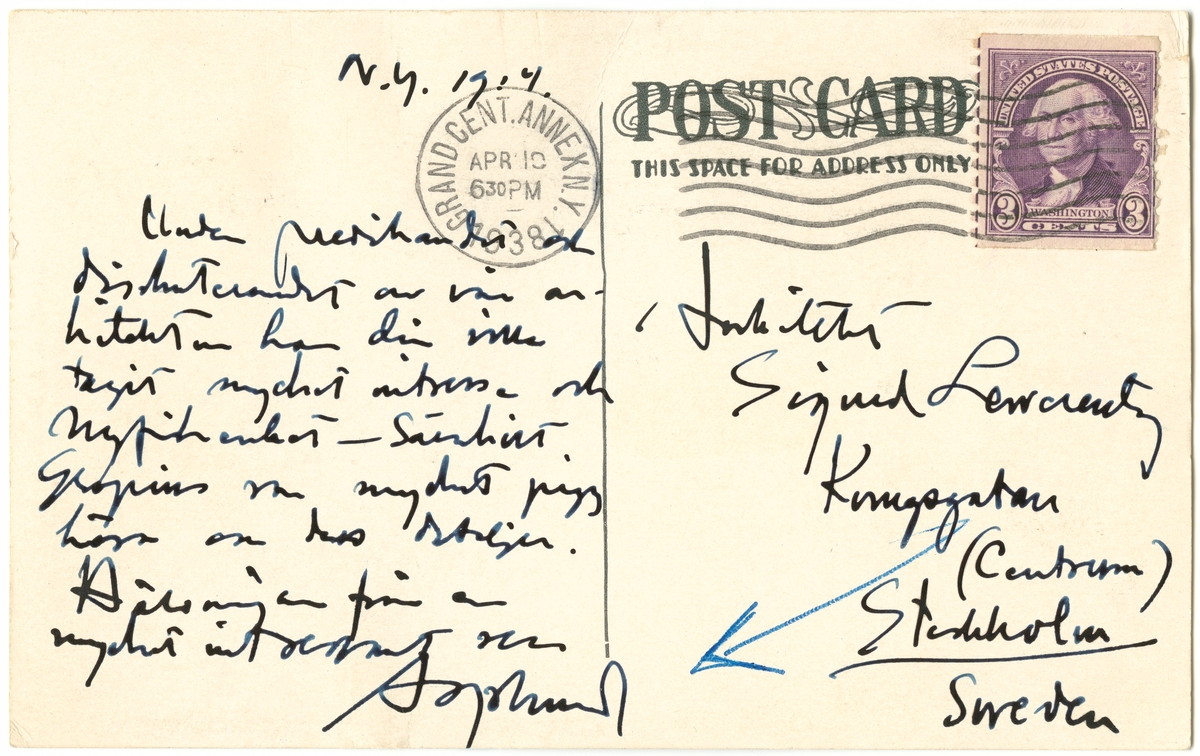 N.Y. 19.4.
GRAND CENT. ANNEX N.Y.
APR 10
6 30 PM
1938
POST CARD
THIS SPACE FOR ADDRESS ONLY
UNITED STATES POSTAGE
3 WASHINGTON 3
CENTS
Under och
disku­terandet av vår ar-
kitektur har din villa
tagit mycket intresse och
Nyfikenhet – Särskilt
Gropius var mycket pigg
höra om dess detaljer.
Hälsningar från en
mycket intressant resa
Asplund
Arkitekt
Sigurd Lewerentz
Kungsgatan
(Centrum)
Stockholm
Sweden